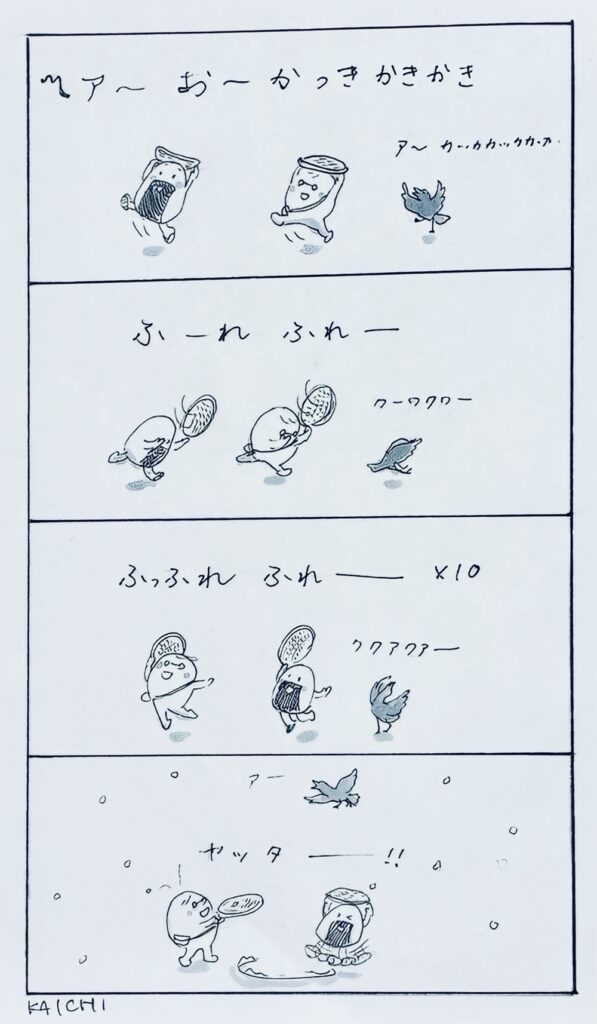 ア〜 お〜 かっき かき かき
ア〜 カッカカカックカッカ
ふーれ ふれー
クーワクワー
ふっふれ ふれー ×10
ククアクアー
アー
ヤッター!!
KAICHI